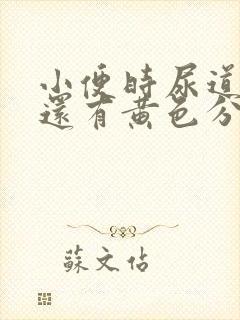 小便時尿道
還有黃色分
蘇文估